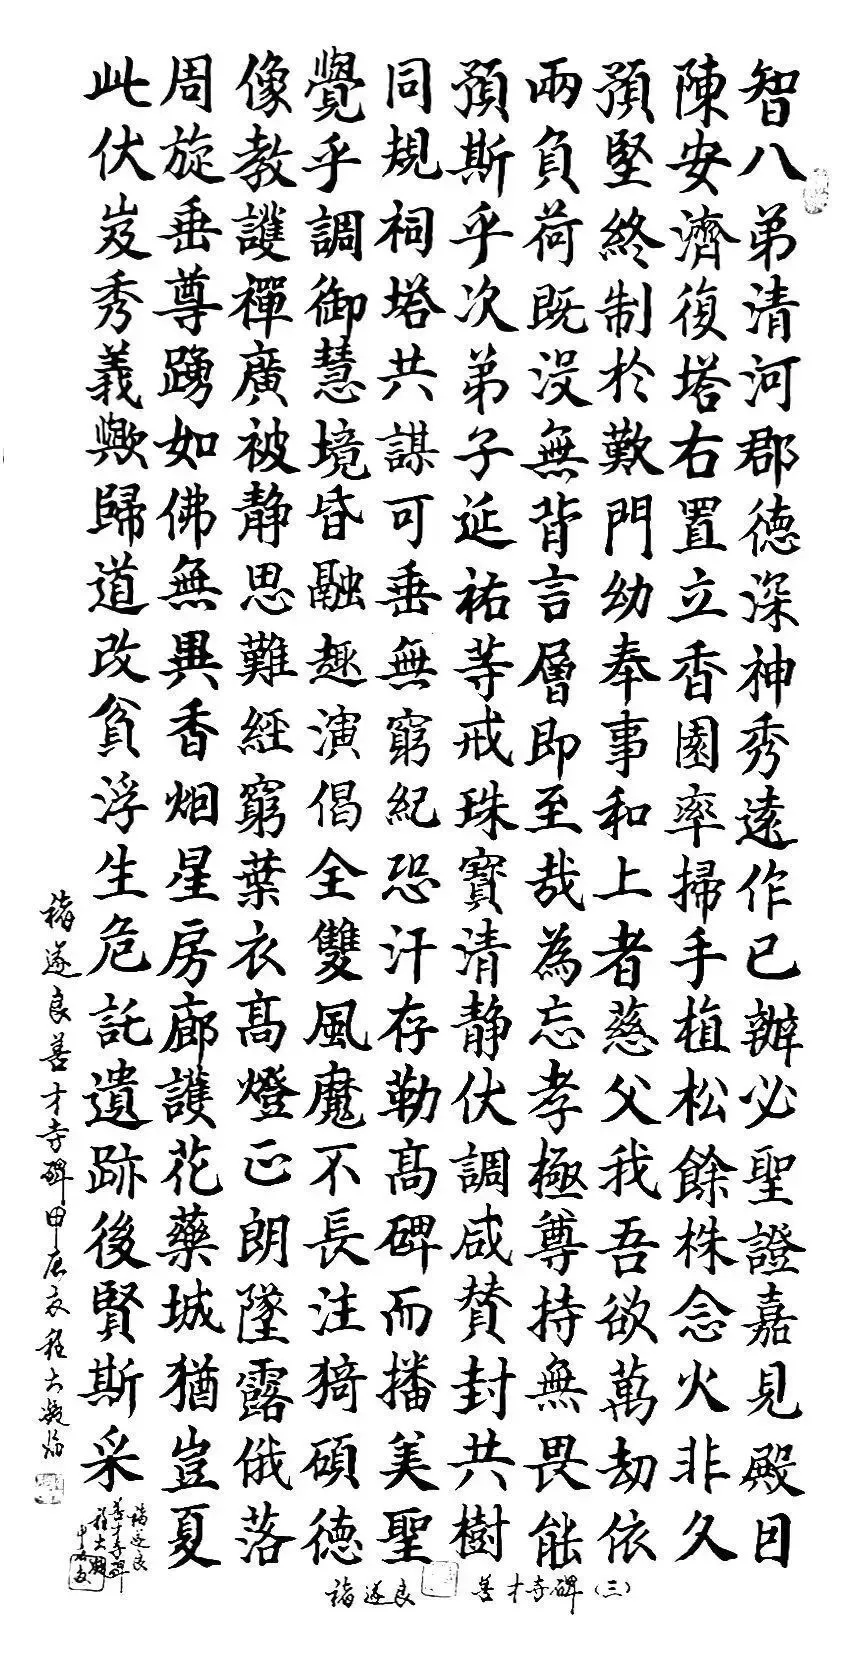 智八弟清河郡德深神秀遠作已辦必聖證嘉見殿目
陳安濟復塔右置立香園率掃手植松餘株念火非久
預堅終制於歎門幼奉事和上者慈父我吾欲萬劫依
兩負荷既没無背言層即至哉為忘孝極尊持無畏能
預斯乎次弟子延祐等戒珠寶清静伏調咸賛封共樹
同規祠塔共謀可垂無窮紀恐汗存勒高碑而播美聖
覺乎調御慧境昏融趣演偈全雙風魔不長注猗碩德
像教護禪廣被静思難經窮葉衣高燈正朗墜露俄落
周旋垂尊踴如佛無異香烟星房廊護花藥城猶豈夏
此伏岌秀義歟歸道改貧浮生危託遺跡後賢斯采
褚遂良善才寺碑甲辰亥程大凝焔
褚遂良
善才寺碑
褚遂良 善才寺碑（三）